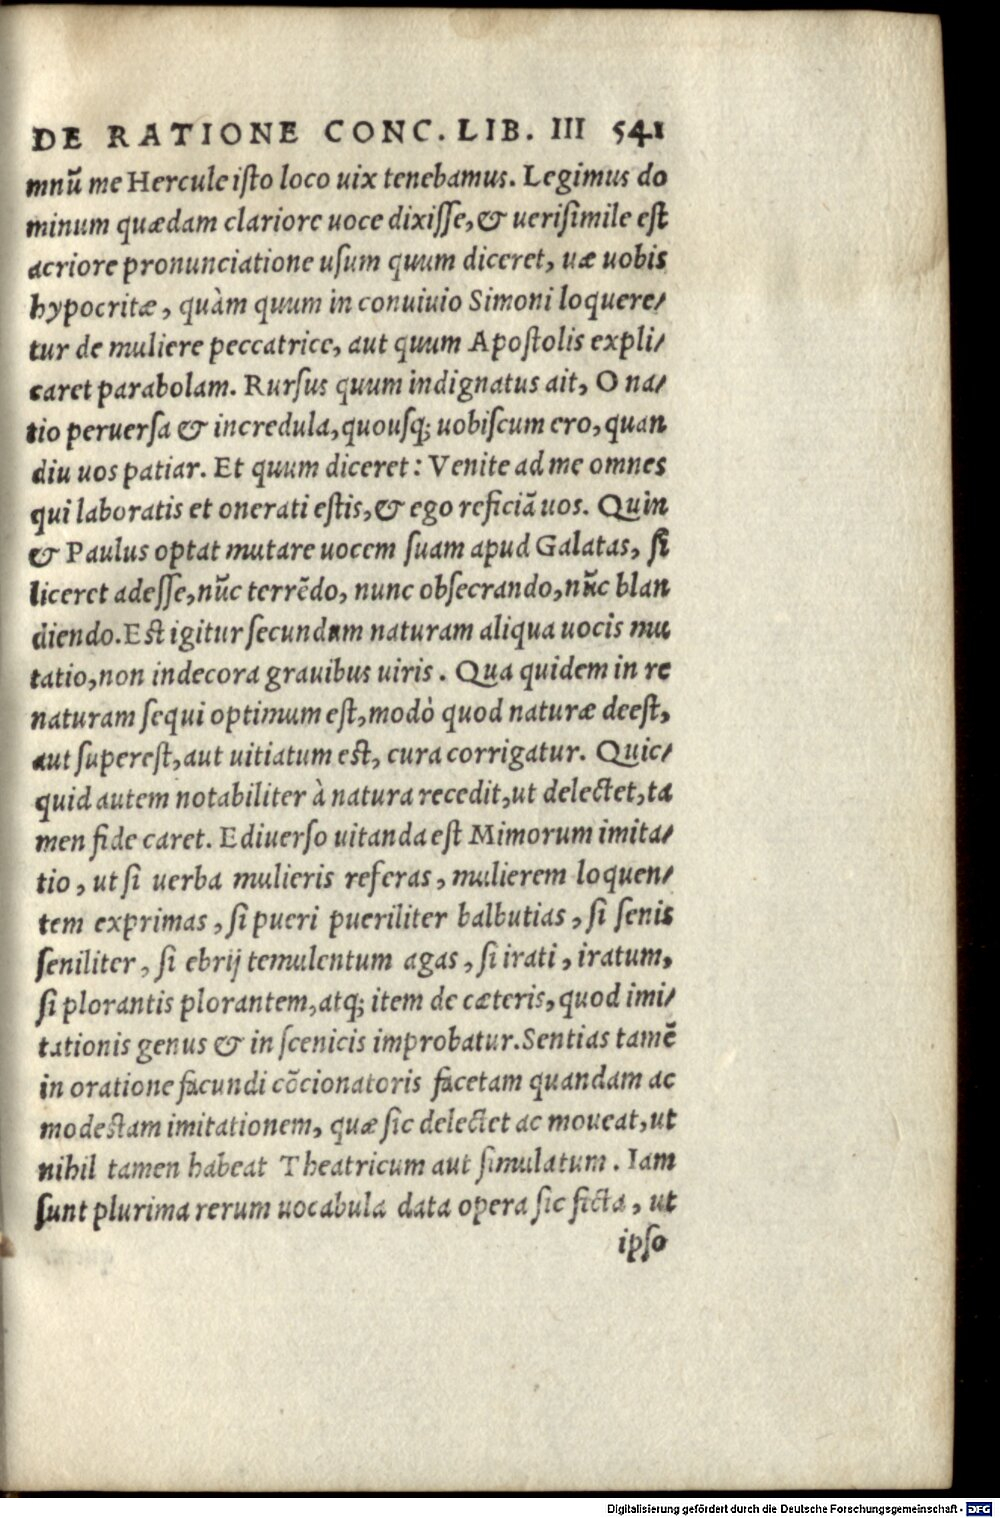 DE RATIONE CONC. LIB. III 541
mnũ me Hercule iſto loco uix tenebamus. Legimus do
minum quædam clariore uoce dixiſſe, & ueriſimile eſt
acriore pronunciatione uſum quum diceret, uæ uobis
hypocritæ, quàm quum in conuiuio Simoni loquere/
tur de muliere peccatrice, aut quum Apoſtolis expli/
caret parabolam. Rurſus quum indignatus ait, O na/
tio peruerſa & incredula, quouſq; uobiſcum ero, quan
diu uos patiar. Et quum diceret: Venite ad me omnes
qui laboratis et onerati eſtis, & ego reficiã uos. Quin
& Paulus optat mutare uocem ſuam apud Galatas, ſi
liceret adeſſe, nũc terrẽdo, nunc obſecrando, nũc blan
diendo. Eſt igitur ſecundum naturam aliqua uocis mu
tatio, non indecora grauibus uiris. Qua quidem in re
naturam ſequi optimum eſt, modò quod naturæ deeſt,
aut ſupereſt, aut uitiatum eſt, cura corrigatur. Quic/
quid autem notabiliter à natura recedit, ut delectet, ta
men fide caret. E diuerſo uitanda eſt Mimorum imita/
tio, ut ſi uerba mulieris referas, mulierem loquen/
tem exprimas, ſi pueri pueriliter balbutias, ſi ſenis
ſeniliter, ſi ebrij temulentum agas, ſi irati, iratum,
ſi plorantis plorantem, atq; item de cæteris, quod imi/
tationis genus & in ſcenicis improbatur. Sentias tamẽ
in oratione facundi cõcionatoris facetam quandam ac
modeſtam imitationem, quæ ſic delectet ac moueat, ut
nihil tamen habeat Theatricum aut ſimulatum. Iam
ſunt plurima rerum uocabula data opera ſic ficta, ut
ipſo
Digitalisierung gefördert durch die Deutsche Forschungsgemeinschaft - DFG